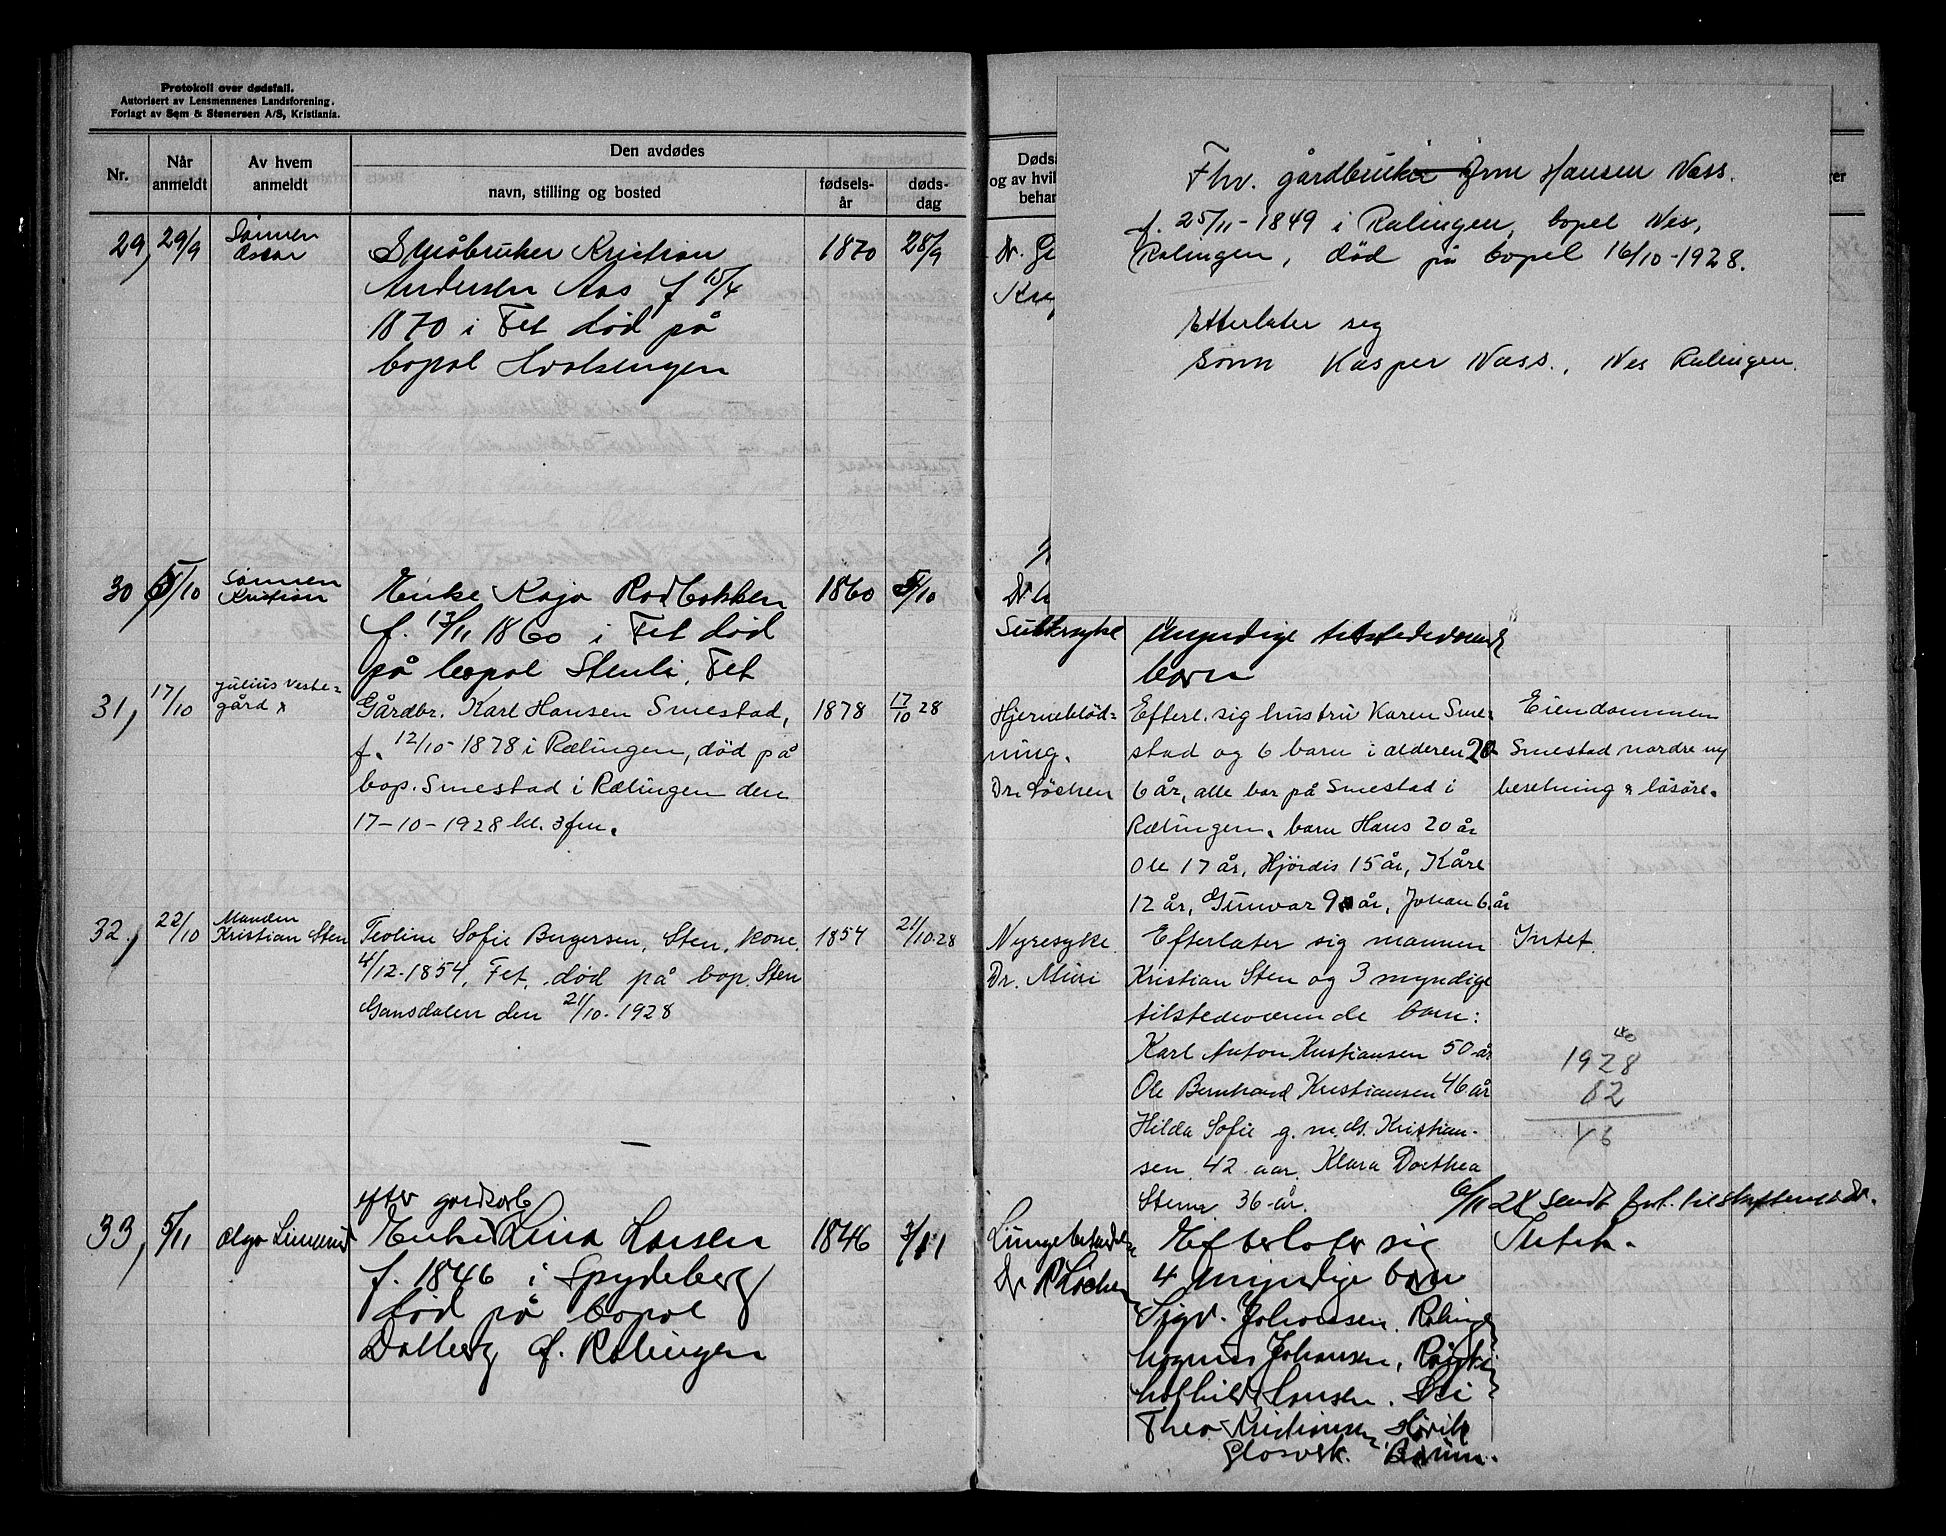 Protokoll over dødsfall.
Autorisert av Lensmennenes Landsforening.
Forlagt av Sem & Stenersen A/S, Kristiania.
Nr.
Når anmeldt
Av hvem anmeldt
Den avdødes
navn, stilling og bosted
fødsels-
år
døds-
dag
29, 29/9 Sønnen
Oscar
Småbruker Kristian
Andersen Aas f 15/4
1870 i Fet død på
bopel Hvalsengen
1870 28/9
30 5/10 Sønnen
Kristian
Enke Kaja Rodbakken
f. 13/11 1860 i Fet død
på bopel Stenli, Fet
1860 5/10
31, 17/10 Julius Veste-
gård
Gårdbr. Karl Hansen Smestad,
f. 12/10-1878 i Rælingen, død på
bop. Smestad i Rælingen den
17-10-1928 kl. 3 fm.
1878 17/10 28
32, 22/10 Manden
Kristian Sten
Teoline Sofie Birgersen, Sten, kone,
4/12-1854, Fet, død på bop. Sten
Gansdalen den 21/10-1928
1854 21/10-28
33, 5/11 Olga
efter gardsarb
Enke Lina Larsen
f. 1846 i Spydeberg
død på bopel
Dalberg i Ralingen
1846 3/11
Døds
og av hvil
behan
er
Fhv. gårdbruker Arne Hansen Næss.
f. 25/11-1849 i Ralingen, bopel Nes,
Ralingen, død på bopel 16/10-1928.
Etterlater seg
sønn Kasper Næss., Nes Ralingen.
Dr.
Dr.
Sukkersyke
Myndige tilstedeværende
barn
Hjerneblød-
ning.
Dr. Løchen
Efterl. sig hustru Karen Sme-
stad og 6 barn i alderen 20-
6 år, alle bor på Smestad i
Rælingen. barn Hans 20 år
Ole 17 år, Hjørdis 15 år, Kåre
12 år, Gunvor 9 år, Johan 6 år
Eiendommen
Smestad nordre m/
besetning & løsøre.
Nyresyke
Dr.
Efterlater sig mannen
Kristian Sten og 3 myndige
tilstedeværende barn:
Karl Anton Kristiansen 50 år
Ole Bernhard Kristiansen 46 år
Hilda Sofie g. m. Kristian-
sen 42 aar, Klara Dorthea
Stenm 36 år.
Intet
1928
82
46
6/11 28 sendt til skifteretten
Lungebetændelse
Dr Løchen
Efterlater sig
4 myndige barn
Sigv. Johansen. Ralingen
Magnus Johansen,
Mathilde Hansen.
Thea Kristiansen,
Glasverk. Bærum.
Intet.